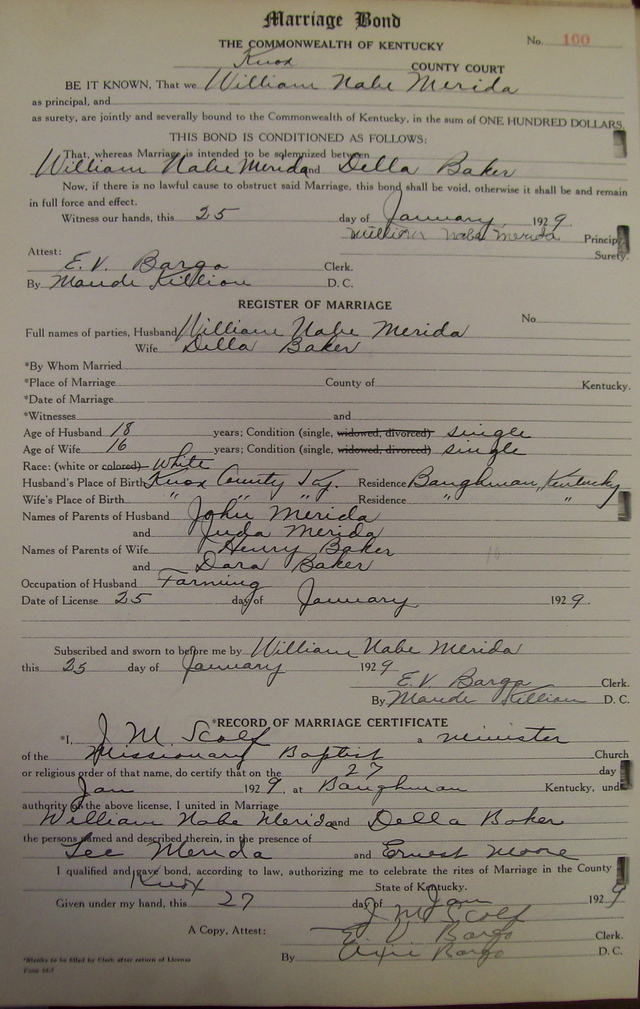 Marriage Bond
THE COMMONWEALTH OF KENTUCKY
No. 100
Knox COUNTY COURT
BE IT KNOWN, That we William Nabe Merida
as principal, and
as surety, are jointly and severally bound to the Commonwealth of Kentucky, in the sum of ONE HUNDRED DOLLARS
THIS BOND IS CONDITIONED AS FOLLOWS:
That, whereas Marriage is intended to be solemnized between
William Nabe Merida and Della Baker
Now, if there is no lawful cause to obstruct said Marriage, this bond shall be void, otherwise it shall be and remain
in full force and effect.
Witness our hands, this 25 day of January, 1929
William Nabe Merida Principal
Surety.
Attest:
E. V. Bargo Clerk.
By Maude Killion D. C.
REGISTER OF MARRIAGE
No
Full names of parties, Husband William Nabe Merida
Wife Della Baker
*By Whom Married
*Place of Marriage County of Kentucky.
*Date of Marriage
*Witnesses and
Age of Husband 18 years; Condition (single, widowed, divorced) single
Age of Wife 16 years; Condition (single, widowed, divorced) single
Race: (white or colored) White
Husband's Place of Birth Knox County Ky. Residence Baughman, Kentucky
Wife's Place of Birth " " " Residence " "
Names of Parents of Husband John Merida
and Juda Merida
Names of Parents of Wife Henry Baker
and Dora Baker
Occupation of Husband Farming
Date of License 25 day of January 1929.
Subscribed and sworn to before me by William Nabe Merida
this 25 day of January 1929
E. V. Bargo Clerk.
By Maude Killian D. C.
*RECORD OF MARRIAGE CERTIFICATE
*I, J. M. Scalf a minister
of the Missionary Baptist Church
or religious order of that name, do certify that on the 27 day
Jan 1929, at Baughman Kentucky, und
authority of the above license, I united in Marriage
William Nabe Merida and Della Baker
the persons named and described therein, in the presence of
Lee Merida and Ernest Moore
I qualified and gave bond, according to law, authorizing me to celebrate the rites of Marriage in the County
Knox State of Kentucky.
Given under my hand, this 27 day of Jan 1929
J M Scalf
A Copy, Attest: E. V. Bargo Clerk.
By Bargo D. C.
*Blanks to be filled by Clerk after return of License